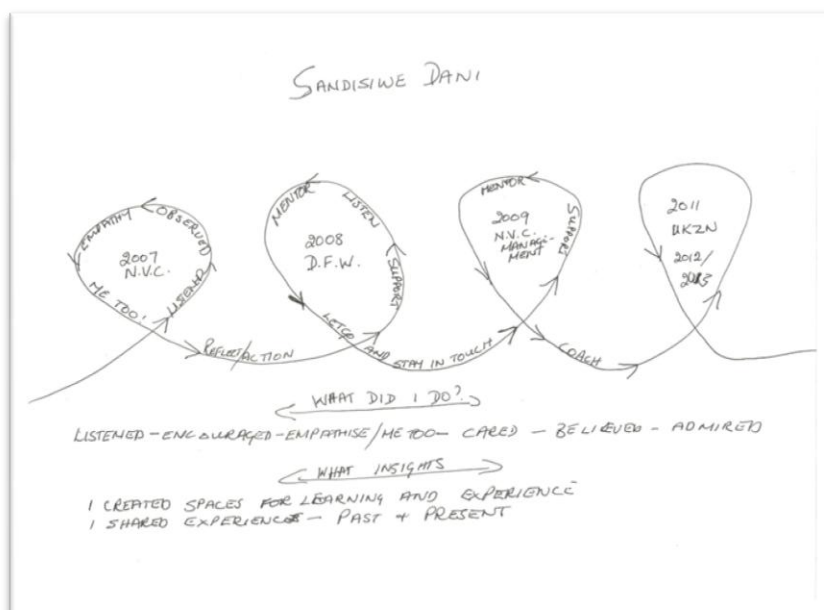 SANDISIWE DANI
EMPATHY OBSERVED LISTENED ME TOO!
2007
N.V.C.
REFLECT/ACTION
MENTOR LISTEN SUPPORT
2008
D.F.W.
LETGO AND STAY IN TOUCH
MENTOR SUPPORT
2009
N.V.C.
MANAGE-
MENT
COACH
2011
UKZN
2012/
2013
WHAT DID I DO?
LISTENED - ENCOURAGED - EMPATHISE/ME TOO - CARED - BELIEVED - ADMIRED
WHAT INSIGHTS
I CREATED SPACES FOR LEARNING AND EXPERIENCE
I SHARED EXPERIENCES - PAST + PRESENT